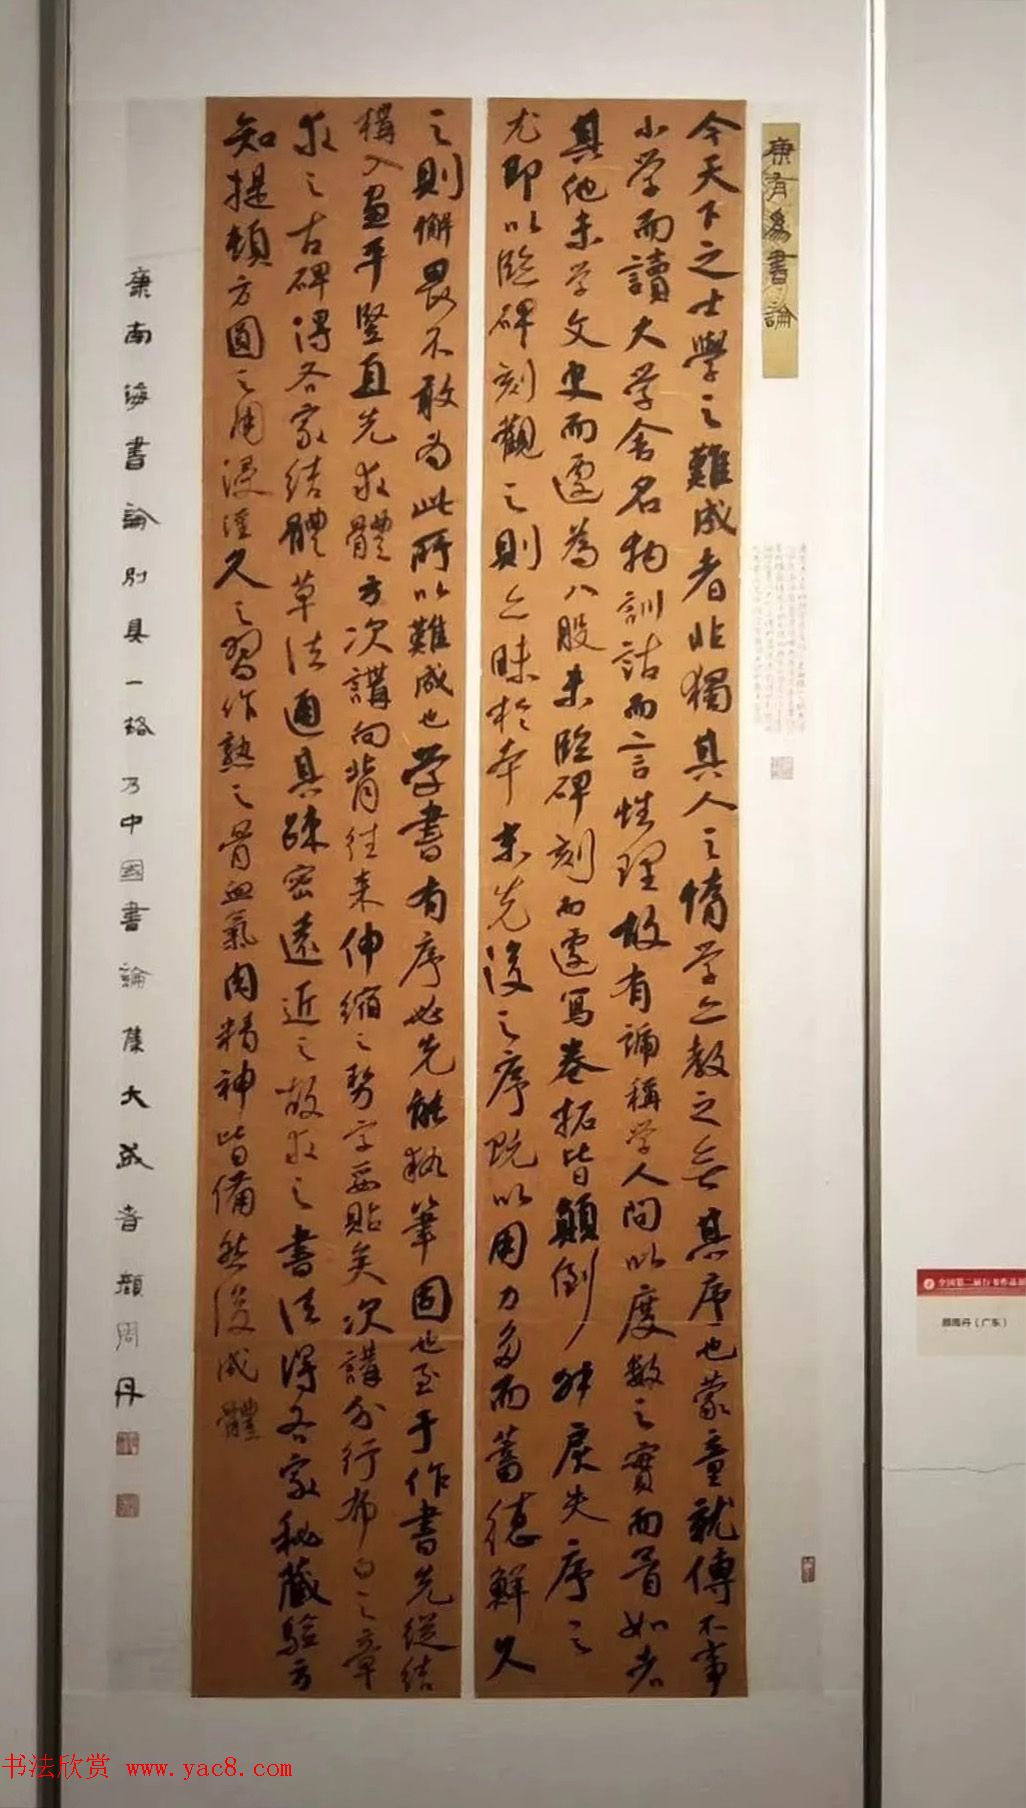 康有為書論
今天下之士學之難成者非獨其人之惰學亦教之無其序也蒙童就傅不事
小学而讀大学舍名物訓詁而言性理故有誦稱学人問以度數之實而瞢如者
其他未学文史而遽為八股未臨碑刻而遽寫卷拓皆顛倒舛戾失序之
尤即以臨碑刻觀之則亦昧於本末先後之序既以用力多而蓄德鮮久
之則懈畏不敢為此所以難成也学書有序必先能執筆固也至于作書先從結
構入畫平竪直先求體方次講向背往来伸縮之勢字妥貼矣次講分行布白之章
求之古碑得各家結體草法通其疎密遠近之故求之書法得各家秘藏驗方
知提頓方圓之用浸淫久之習作熟之骨血氣肉精神皆備然後成體
康南海書論別具一格乃中國書論集大成者顏周丹
全国第二届行书作品展
颜周丹（广东）
书法欣赏 www.yac8.com